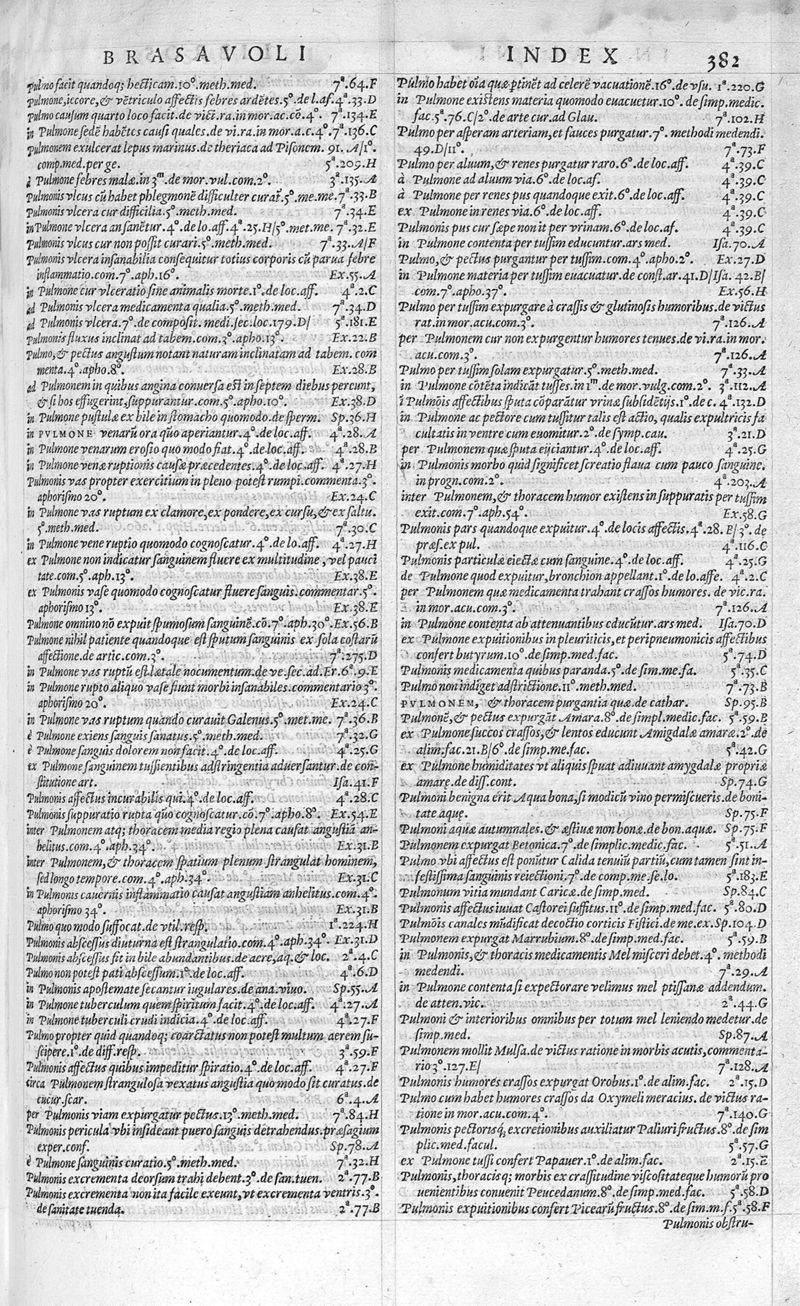 BRASAVOLI
INDEX 382
Pulmo facit quandoq; hecticam.10º.meth.med. 7ª.64.F
Pulmone, iecore, & vẽtriculo affectis febres ardẽtes.5º.de l.af. 4ª.33.D
Pulmo causum quarto loco facit.de vict.ra.in mor.ac.cõ.4º. 7ª.134.E
in Pulmone sedẽ habẽtes causi quales.de vi.ra.in mor.a.c.4º. 7ª.136.C
Pulmonem exulcerat lepus marinus.de theriaca ad Pisonem. 91.A/1º.
comp.med.per ge. 5ª.209.H
à Pulmone febres malæ.in 3m.de mor.vul.com.2º. 3ª.135.A
Pulmonis vlcus cũ habet phlegmonẽ difficulter curat.5º.me.me. 7ª.33.B
Pulmonis vlcera cur difficilia.5º.meth.med. 7ª.34.E
in Pulmone vlcera an sanẽtur.4º.de lo.aff.4ª.25.H/5º.met.me. 7ª.32.E
Pulmonis vlcus cur non possit curari.5º.meth.med. 7ª.33.A/F
Pulmonis vlcera insanabilia consequitur totius corporis cũ parua febre
inflammatio.com.7º.aph.16º. Ex.55.A
in Pulmone cur vlceratio sine animalis morte.1º.de loc.aff. 4ª.2.C
ad Pulmonis vlcera medicamenta qualia.5º.meth.med. 7ª.34.D
ad Pulmonis vlcera.7º.de composit.medi.sec.loc.179.D/ 5ª.181.E
Pulmonis fluxus inclinat ad tabem.com.3º.apho.13º. Ex.22.B
Pulmo, & pectus angustum notant naturam inclinatam ad tabem.com
menta.4º.apho.8º. Ex.28.B
ad Pulmonem in quibus angina conuersa est in septem diebus pereunt,
& si hos effugerint, suppurantur.com.5º.apho.10º. Ex.38.D
in Pulmone pustulæ ex bile in stomacho quomodo.de sperm. Sp.36.H
in PVLMONE venarũ ora quo aperiantur.4º.de loc.aff. 4ª.28.A
in Pulmone venarum erosio quo modo fiat.4º.de loc.aff. 4ª.28.B
in Pulmone venæ ruptionis causæ præcedentes.4º.de loc.aff. 4ª.27.H
Pulmonis vas propter exercitium in pleno potest rumpi.commenta.3º.
aphorismo 20º. Ex.24.C
in Pulmone vas ruptum ex clamore, ex pondere, ex cursu, & ex saltu.
5º.meth.med. 7ª.30.C
in Pulmone vene ruptio quomodo cognoscatur.4º.de lo.aff. 4ª.27.H
ex Pulmone non indicatur sanguinem fluere ex multitudine, vel pauci
tate.com.5º.aph.13º. Ex.38.E
ex Pulmonis vase quomodo cognoscatur fluere sanguis.commentar.5º.
aphorismo 13º. Ex.38.E
Pulmone omnino nõ expuit spumosum sanguinẽ.cõ.7º.aph.30º. Ex.56.B
Pulmone nihil patiente quandoque est sputum sanguinis ex sola costarũ
affectione.de artic.com.3º. 7ª.275.D
in Pulmone vas ruptũ est letale nocumentum.de ve.sec.ad.Er. 6ª.9.E
in Pulmone rupto aliquo vase fiunt morbi insanabiles.commentario 3º.
aphorismo 20º. Ex.24.C
in Pulmone vas ruptum quando curauit Galenus.5º.met.me. 7ª.36.B
è Pulmone exiens sanguis sanatus.5º.meth.med. 7ª.32.G
è Pulmone sanguis dolorem non facit.4º.de loc.aff. 4ª.25.G
ex Pulmone sanguinem tussientibus adstringentia aduersantur.de con-
stitutione art. Isa.41.F
Pulmonis affectus incurabilis qui.4º.de loc.aff. 4ª.28.C
Pulmonis suppuratio rupta quo cognoscatur.cõ.7º.apho.8º. Ex.54.E
inter Pulmonem atq; thoracem media regio plena causat angustiã an-
helitus.com.4º.aph.34º. Ex.31.B
inter Pulmonem, & thoracem spatium plenum strangulat hominem,
sed longo tempore.com.4º.aph.34º. Ex.31.C
in Pulmonis cauernis inflammatio causat angustiam anhelitus.com.4º.
aphorismo 34º. Ex.31.B
Pulmo quo modo suffocat.de vtil.resp. 1ª.224.H
Pulmonis abscessus diuturna est strangulatio.com.4º.aph.34º. Ex.31.D
Pulmonis abscessus fit in bile abundantibus.de aere, aq.& loc. 2ª.4.C
Pulmo non potest pati abscessum.1º.de loc.aff. 4ª.6.D
in Pulmonis apostemate secantur iugulares.de ana.viuo. Sp.55.A
in Pulmone tuberculum quem spiritum facit.4º.de loc.aff. 4ª.27.A
in Pulmone tuberculi crudi indicia.4º.de loc.aff. 4ª.27.F
Pulmo propter quid quandoq; coarctatus non potest multum aerem su-
scipere.1º.de diff.resp. 3ª.59.F
Pulmonis affectus quibus impeditur spiratio.4º.de loc.aff. 4ª.27.F
circa Pulmonem strangulosa vexatus angustia quo modo sit curatus.de
cucur.scar. 6ª.4.A
per Pulmonis viam expurgatur pectus.13º.meth.med. 7ª.84.H
Pulmonis pericula vbi insideant puero sanguis detrahendus.præsagium
exper.conf. Sp.78.A
è Pulmone sanguinis curatio.5º.meth.med. 7ª.32.H
Pulmonis excrementa deorsum trahi debent.3º.de san.tuen. 2ª.77.B
Pulmonis excrementa non ita facile exeunt, vt excrementa ventris.3º.
de sanitate tuenda. 2ª.77.B
Pulmo habet oĩa quæ ptinẽt ad celerẽ vacuationẽ.16º.de vsu. 1ª.220.G
in Pulmone existens materia quomodo euacuetur.10º.de simp.medic.
fac.5ª.76.C/2º.de arte cur.ad Glau. 7ª.102.H
Pulmo per asperam arteriam, et fauces purgatur.7º.methodi medendi.
49.D/11º. 7ª.73.F
Pulmo per aluum, & renes purgatur raro.6º.de loc.aff. 4ª.39.C
à Pulmone ad aluum via.6º.de loc.af. 4ª.39.C
à Pulmone per renes pus quandoque exit.6º.de loc.aff. 4ª.39.C
ex Pulmone in renes via.6º.de loc.aff. 4ª.39.C
Pulmonis pus cur sæpe non it per vrinam.6º.de loc.af. 4ª.39.C
in Pulmone contenta per tussim educuntur.ars med. Isa.70.A
Pulmo, & pectus purgantur per tussim.com.4º.apho.2º. Ex.27.D
in Pulmone materia per tussim euacuatur.de const.ar.41.D/Isa.42.B/
com.7º.apho.37º. Ex.56.H
Pulmo per tussim expurgare à crassis & glutinosis humoribus.de victus
rat.in mor.acu.com.3º. 7ª.126.A
per Pulmonem cur non expurgentur humores tenues.de vi.ra.in mor.
acu.com.3º. 7ª.126.A
Pulmo per tussim solam expurgatur.5º.meth.med. 7ª.33.A
in Pulmone cõtẽta indicãt tusses.in 1m.de mor.vulg.com.2º. 3ª.112.A
ĩ Pulmõis affectibus sputa cõparãtur vrinæ subsidẽtijs.1º.de c. 4ª.132.D
in Pulmone ac pectore cum tussitur talis est actio, qualis expultricis fa
cultatis in ventre cum euomitur.2º.de symp.cau. 3ª.21.D
per Pulmonem quæ sputa eijciantur.4º.de loc.aff. 4ª.25.G
in Pulmonis morbo quid significet screatio flaua cum pauco sanguine.
in progn.com.2º. 4ª.203.A
inter Pulmonem, & thoracem humor existens in suppuratis per tussim
exit.com.7º.aph.54º. Ex.58.G
Pulmonis pars quandoque expuitur.4º.de locis affectis.4ª.28.E/3º.de
præs.ex pul. 4ª.116.C
Pulmonis particulæ eiectæ cum sanguine.4º.de loc.aff. 4ª.25.G
de Pulmone quod expuitur, bronchion appellant.1º.de lo.affe. 4ª.2.C
per Pulmonem quæ medicamenta trahant crassos humores.de vic.ra.
in mor.acu.com.3º. 7ª.126.A
in Pulmone contenta ab attenuantibus educũtur.ars med. Isa.70.D
ex Pulmone expuitionibus in pleuriticis, et peripneumonicis affectibus
confert butyrum.10º.de simp.med.fac. 5ª.74.D
Pulmonis medicamenta quibus paranda.5º.de sim.me.fa. 5ª.35.C
Pulmo non indiget adstrictione.11º.meth.med. 7ª.73.B
PVLMONEM, & thoracem purgantia quæ.de cathar. Sp.95.B
Pulmonẽ, & pectus expurgãt Amara.8º.de simpl.medic.fac. 5ª.59.B
ex Pulmone succos crassos, & lentos educunt Amigdalæ amaræ.2º.de
alim.fac.21.B/6º.de simp.me.fac. 5ª.42.G
ex Pulmone humiditates vt aliquis spuat adiuuant amygdalæ propriæ
amare.de diss.cont. Sp.74.G
Pulmoni benigna erit Aqua bona, si modicũ vino permiscueris.de boni-
tate aquę. Sp.75.F
Pulmoni aquæ autumnales.& æstiuæ non bonæ.de bon.aquæ. Sp.75.F
Pulmonem expurgat Betonica.7º.de simplic.medic.fac. 5ª.51.A
Pulmo vbi affectus est ponũtur Calida tenuiũ partiũ, cum tamen sint in-
festissima sanguinis reiectioni.7º.de comp.me.se.lo. 5ª.183.E
Pulmonum vitia mundant Caricæ.de simp.med. Sp.84.C
Pulmonis affectus iuuat Castorei suffitus.11º.de simp.med.fac. 5ª.80.D
Pulmõis canales mũdificat decoctio corticis Fistici.de me.ex. Sp.104.D
Pulmonem expurgat Marrubium.8º.de simp.med.fac. 5ª.59.B
in Pulmonis, & thoracis medicamentis Mel misceri debet.4º.methodi
medendi. 7ª.29.A
in Pulmone contenta si expectorare velimus mel ptissanæ addendum.
de atten.vic. 2ª.44.G
Pulmoni & interioribus omnibus per totum mel leniendo medetur.de
simp.med. Sp.87.A
Pulmonem mollit Mulsa.de victus ratione in morbis acutis, commenta-
rio 3º.127.E/ 7ª.128.A
Pulmonis humores crassos expurgat Orobus.1º.de alim.fac. 2ª.15.D
Pulmo cum habet humores crassos da Oxymeli meracius.de victus ra-
tione in mor.acu.com.4º. 7ª.140.G
Pulmonis pectorisq; excretionibus auxiliatur Paliuri fructus.8º.de sim
plic.med.facul. 5ª.57.G
ex Pulmone tussi confert Papauer.1º.de alim.fac. 2ª.15.E
Pulmonis, thoracisq; morbis ex crassitudine viscositateque humorũ pro
uenientibus conuenit Peucedanum.8º.de simp.med.fac. 5ª.58.D
Pulmonis expuitionibus confert Picearũ fructus.8º.de sim.m.f. 5ª.58.F
Pulmonis obstru-